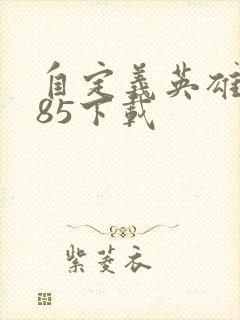 自定義英雄
85下載
紫菱衣